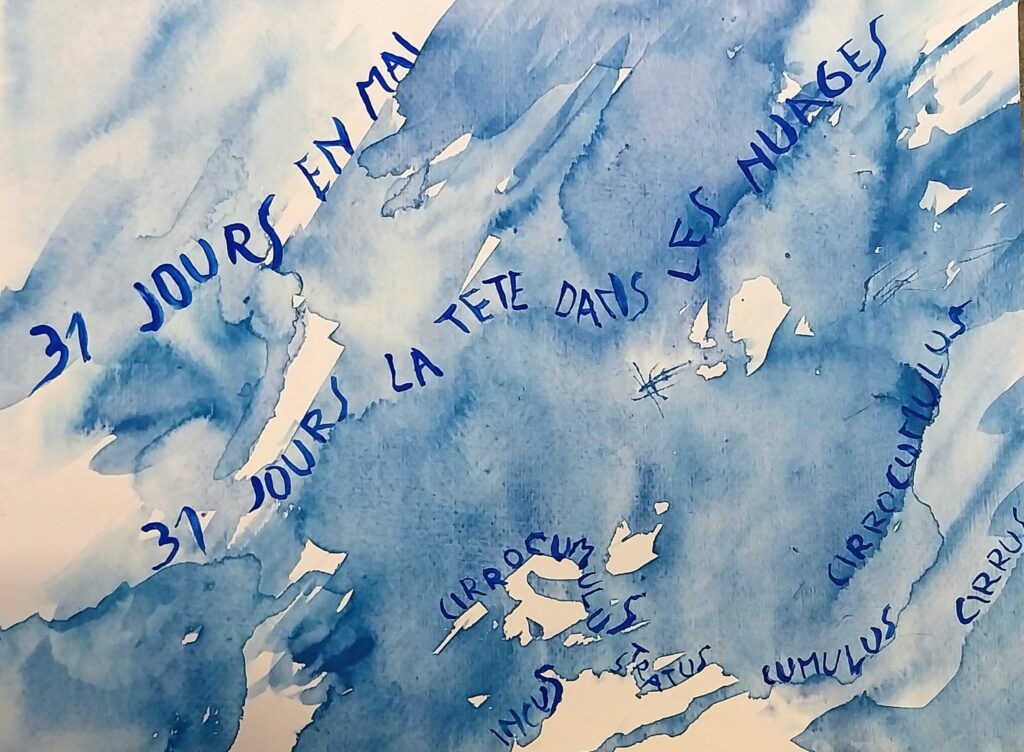 31 JOURS EN MAI
31 JOURS LA TETE DANS LES NUAGES
CIRROCUMULUS
CIRROCUMULUS
CIRRUS
STRATUS
CUMULUS
INCUS